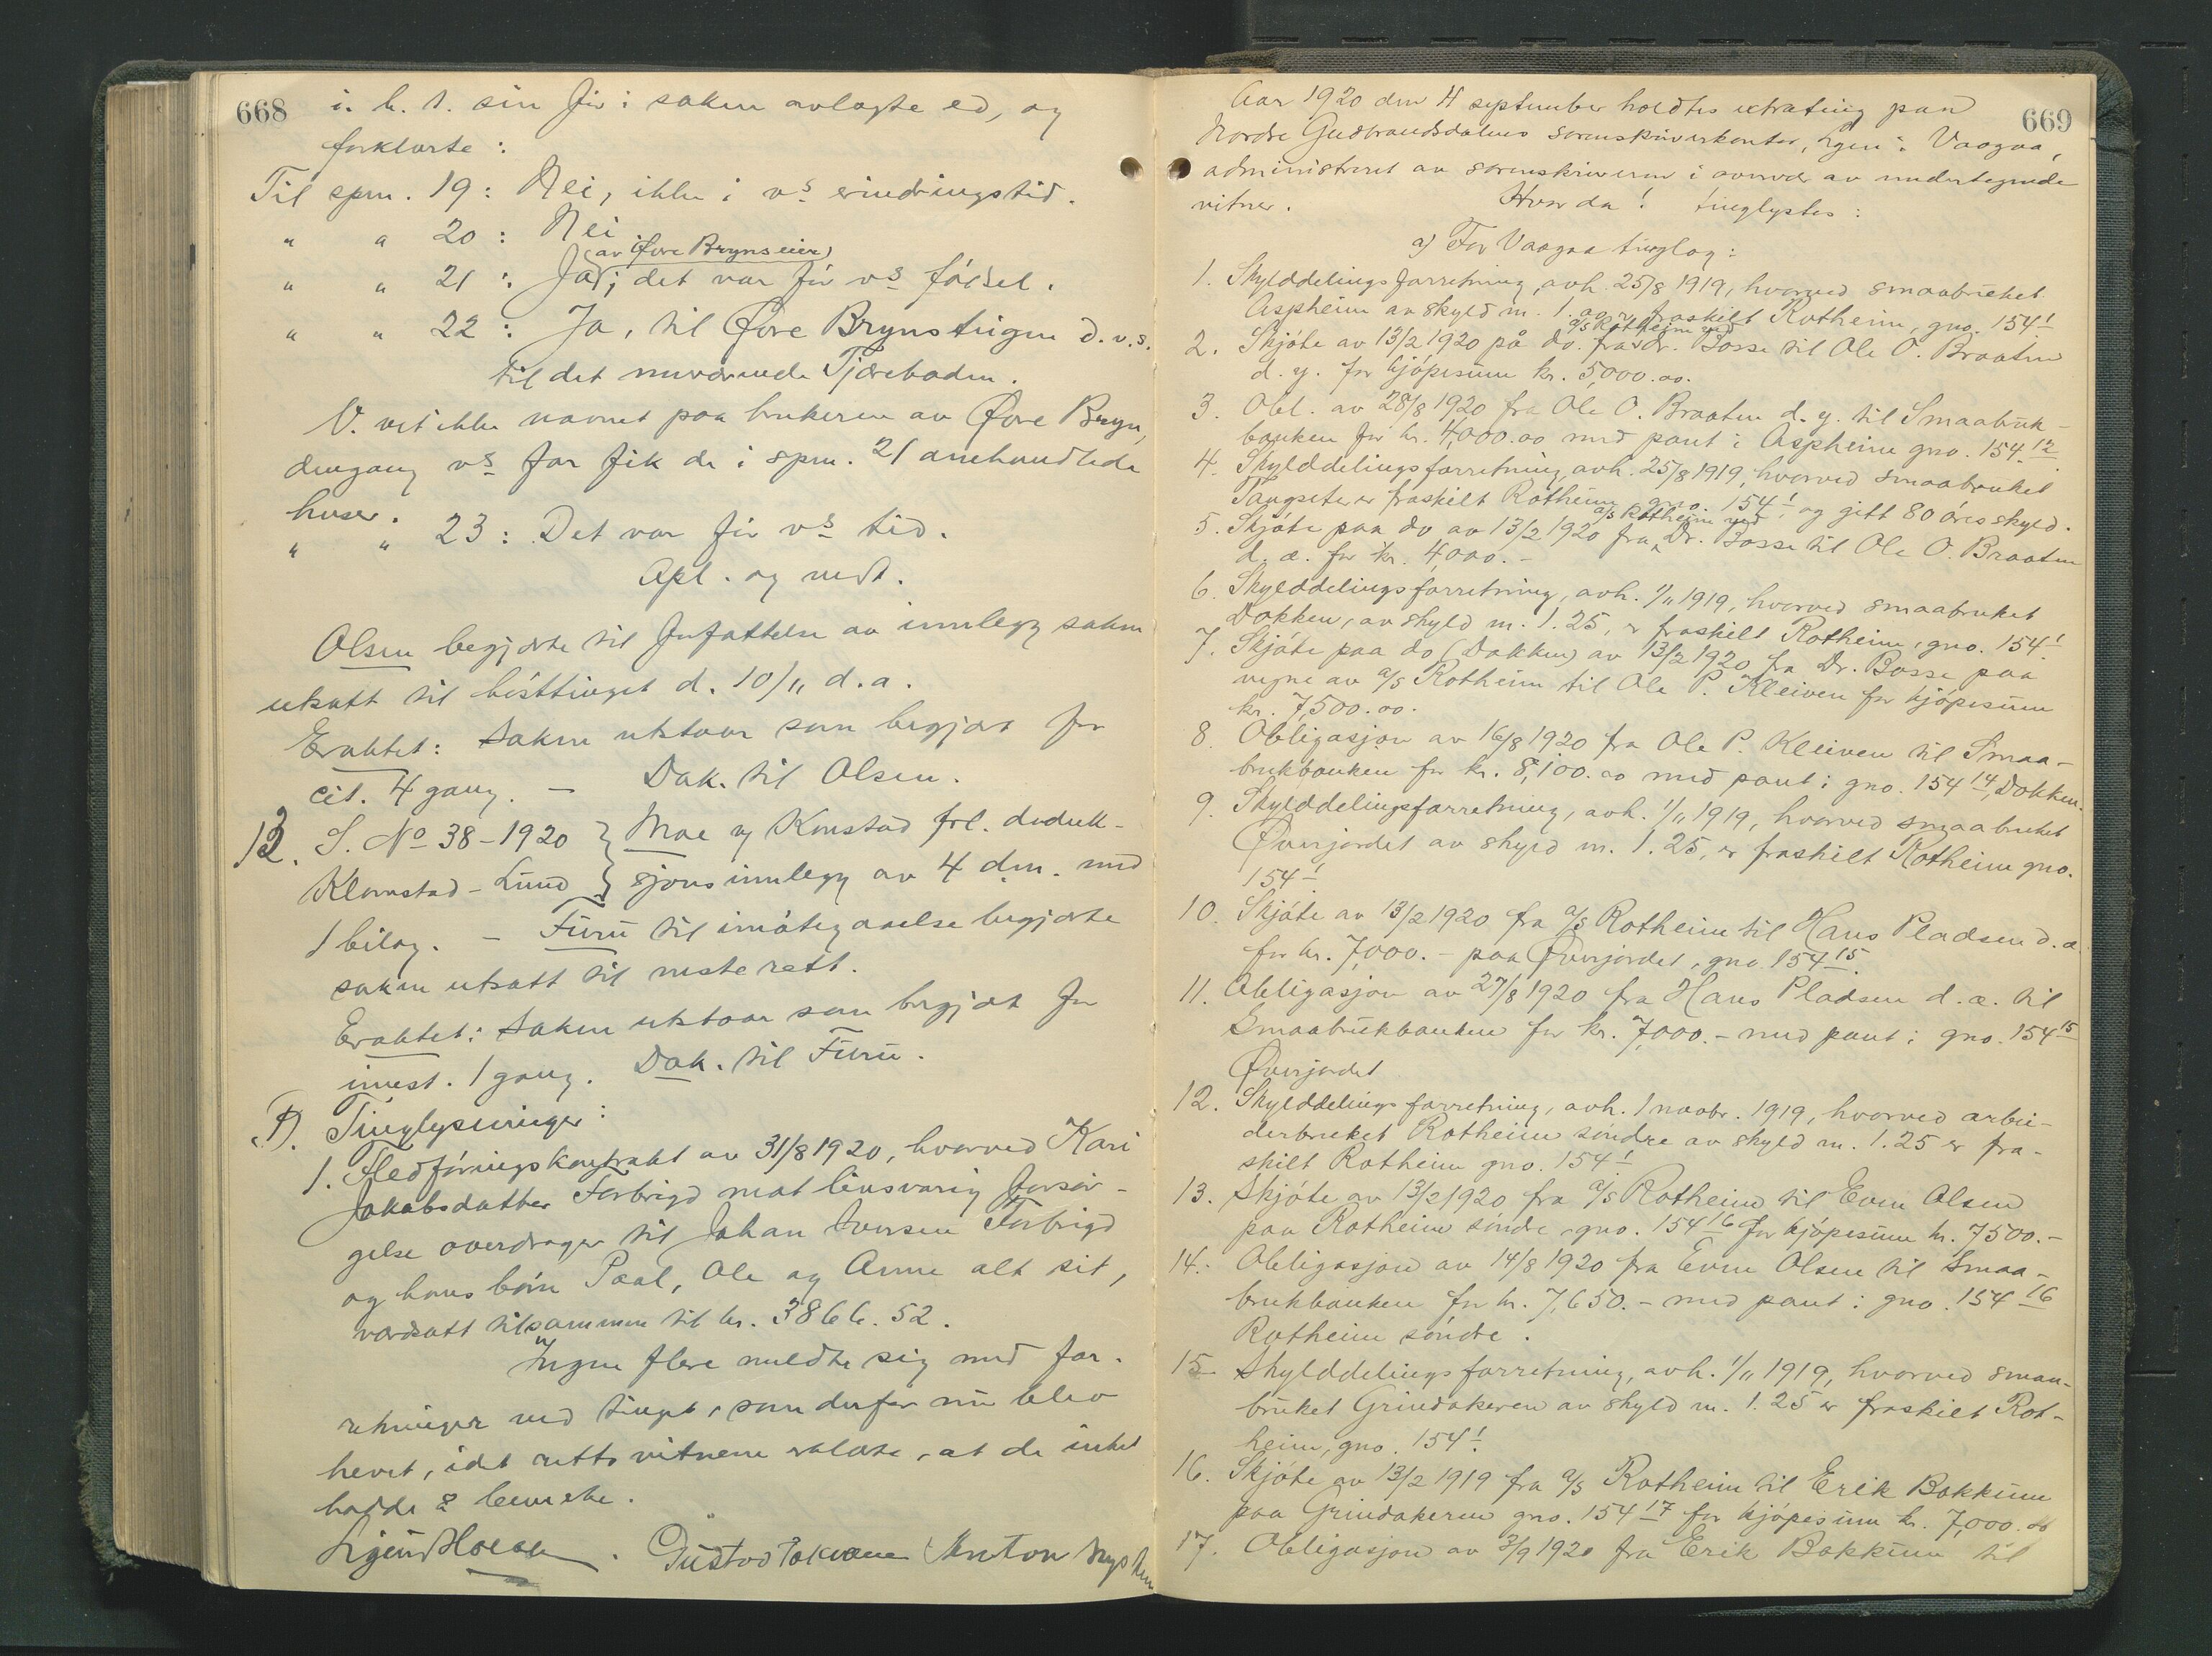 668
i. h. t. sin før i saken avlagte ed, og
forklarte :
Til spm. 19 : Nei, ikke i vs erindringstid.
" " 20 : Nei
(av Øvre Bryns eier)
" " 21 : Ja; det var før vs fødsel.
" " 22 : Ja, til Øvre Brynstugen d.v.s.
til det nuværende Tjæreboden.
V. vet ikke navnet paa brukeren av Øvre Bryn,
dengang vs far fik de i spm. 21 omhandlede
huser.
" " 23 : Det var før vs tid.
Opl. og vedt.
Olsen begjærte til forfattelse av innlegg saken
utsatt til høsttinget d. 10/11 d.a.
Eraktet: Saken utstaar som begjært for
cit. 4 gang. – Dok. til Olsen.
13. S. No 38-1920 } Moe og Konstad frl. deduk-
Klomstad - Lund } sjonsinnlegg av 4 dm. med
1 bilag. – Furu til imøtegaaelse begjærte
saken utsatt til neste rett.
Eraktet: Saken utstaar som begjært for
invest. 1 gang. Dok. til Furu.
D. Tinglysninger :
1. Fledføringskontrakt av 31/8 1920, hvorved Kari
Jakobsdatter Forbrigd mot livsvarig forsør-
gelse overdrager til Johan Iversen Forbrigd
og hans børn Paal, Ole og Anne alt sit,
værdsatt tilsammen til kr. 3866.52.
Ingen flere meldte sig med for-
retninger ved tinget, som derfor nu blev
hevet, idet rettsvitnene erklærte, at de intet
hadde å bemerke.
Gustav Anton
669
Aar 1920 den 4 september holdtes extrating paa
Nordre Gudbrandsdalens sorenskriverkontor, i Vaagaa,
administreret av sorenskriveren i overvær av undertegnede
vitner. Hvorda! tinglystes :
a) For Vaagaa tinglag :
1. Skylddelingsforretning, avh. 25/8 1919, hvorved smaabruket
Aspheim av skyld m. 1.00 er fraskilt Rotheim, gno. 154 1
a/s Rotheim ved
2. Skjøte av 13/2 1920 på do. fra Dr. Bosse til Ole O. Braaten
d. y. for kjøpesum kr. 5,000.00.
3. Obl. av 28/8 1920 fra Ole O. Braaten d. y. til Smaabruk-
banken for kr. 4,000.00 med pant i Aspheim gno. 154 12.
4. Skylddelingsforretning, avh. 25/8 1919, hvorved smaabruket
Tangsete er fraskilt Rotheim, gno. 154 1 og gitt 80 øres skyld.
a/s Rotheim ved
5. Skjøte paa do av 13/2 1920 fra Dr. Bosse til Ole O. Braaten
d. æ. for kr. 4,000. –
6. Skylddelingsforretning, avh. 1/11 1919, hvorved smaabruket
Dokken, av skyld m. 1.25, er fraskilt Rotheim, gno. 154 1.
7. Skjøte paa do (Dokken) av 13/2 1920 fra Dr. Bosse paa
vegne av a/s Rotheim til Ole P. Kleiven for kjøpesum
kr. 7,500.00.
8. Obligasjon av 16/8 1920 fra Ole P. Kleiven til Smaa-
brukbanken for kr. 8,100.00 med pant i gno. 154 14, Dokken.
9. Skylddelingsforretning, avh. 1/11 1919, hvorved smaabruket
Øverjordet av skyld m. 1.25, er fraskilt Rotheim gno.
154 1.
10. Skjøte av 13/2 1920 fra a/s Rotheim til Hans Pladsen d.æ.
for kr. 7,000. – paa Øverjordet, gno 154 15.
11. Obligasjon av 27/8 1920 fra Hans Pladsen d. æ. til
Smaabrukbanken for kr. 7,000. – med pant i gno. 154 15
Øverjordet
12. Skylddelingsforretning, avh. 1 novbr. 1919, hvorved arbei-
derbruket Rotheim søndre av skyld m. 1.25 er fra-
skilt Rotheim gno. 154 1.
13. Skjøte av 13/2 1920 fra a/s Rotheim til Even Olsen
paa Rotheim søndre, gno. 154 16 for kjøpesum kr. 7500. –
14. Obligasjon av 14/8 1920 fra Even Olsen til Smaa-
brukbanken for kr. 7,650. – med pant i gno. 154 16
Rotheim søndre.
15. Skylddelingsforretning, avh. 1/11 1919, hvorved smaa-
bruket Grindakeren av skyld m. 1.25 er fraskilt Rot-
heim, gno. 154 1.
16. Skjøte av 13/2 1919 fra a/s Rotheim til Erik Bakkum
paa Grindakeren gno. 154 17 for kjøpesum kr. 7,000.00
17. Obligasjon av 3/9 1920 fra Erik Bakkum til